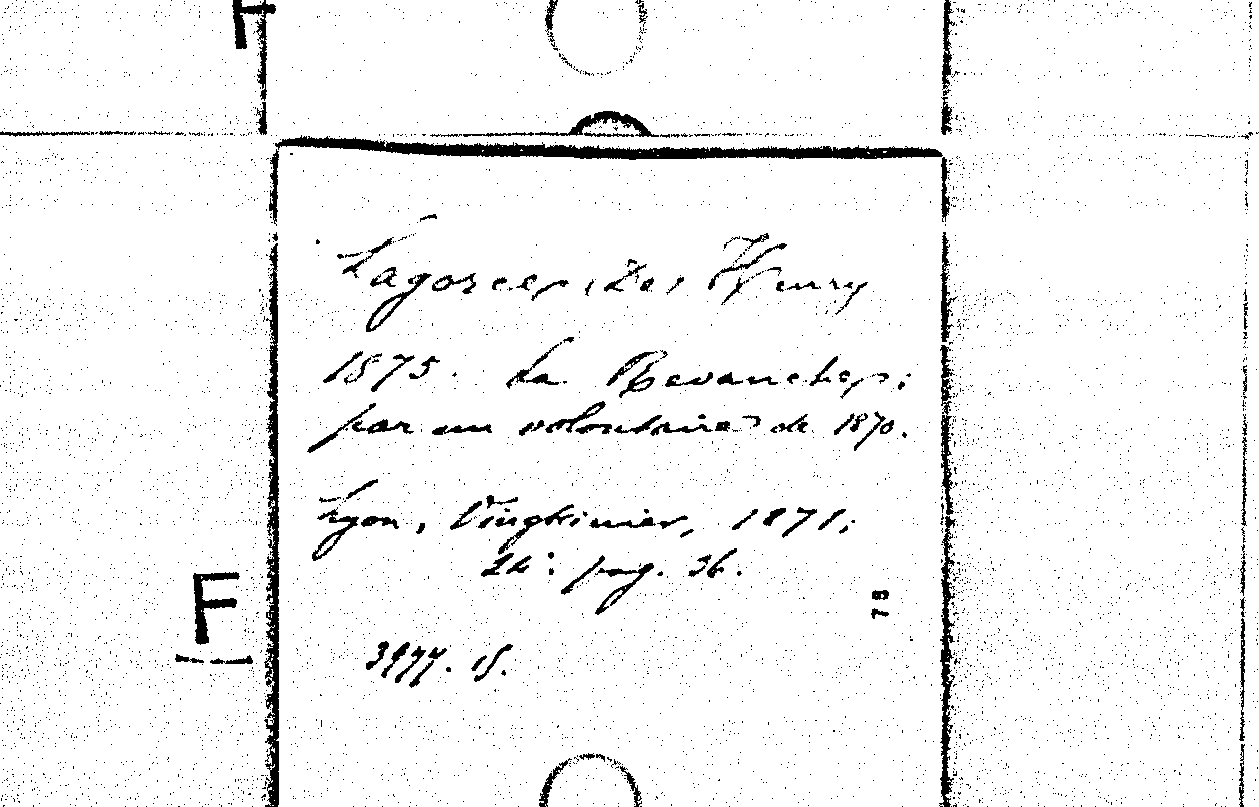 F
Lagorcep, de, Henry
1875. La Revanche;
par un volontaire de 1870.
Lyon, Vingtrinier, 1871;
24º. pag. 36.
78
F
3977. 15.